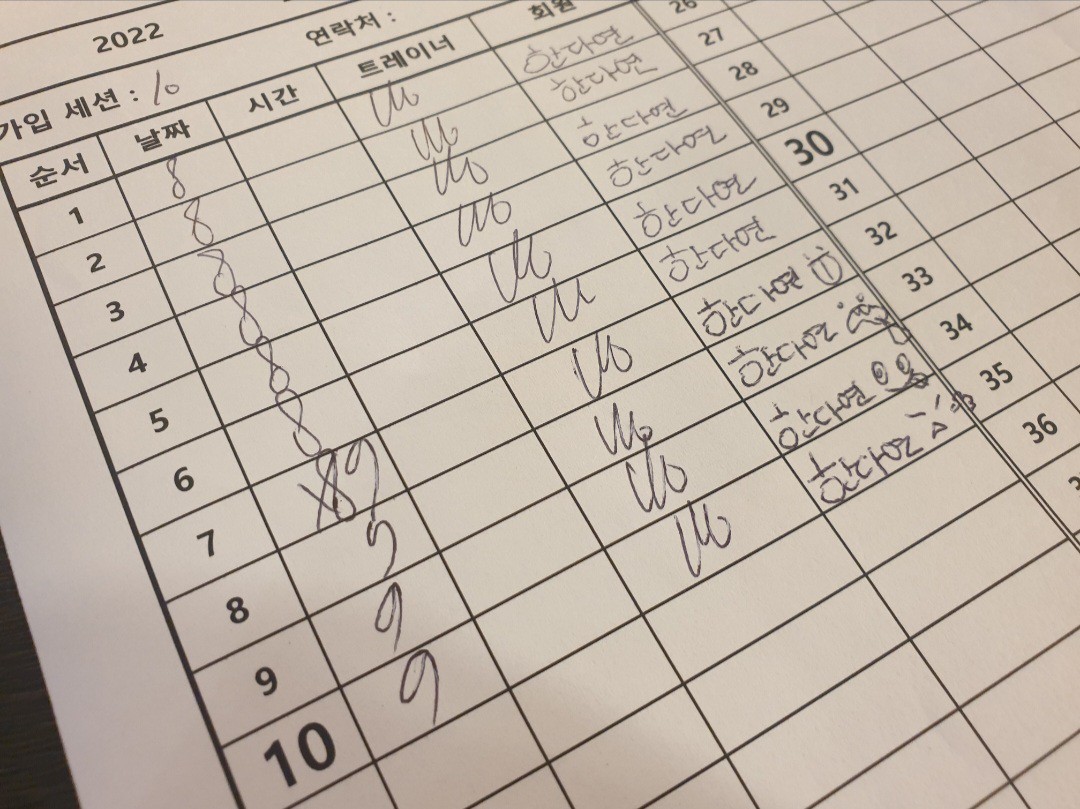 2022
연락처 :
가입 세션 : 10
순서 날짜 시간 트레이너 회원
1 8 한다연
2 8 한다연
3 8 한다연
4 8 한다연
5 8 한다연
6 8 한다연
7 9 한다연
8 9 한다연
9 9 한다연
10 9 한다연
26
27
28
29
30
31
32
33
34
35
36